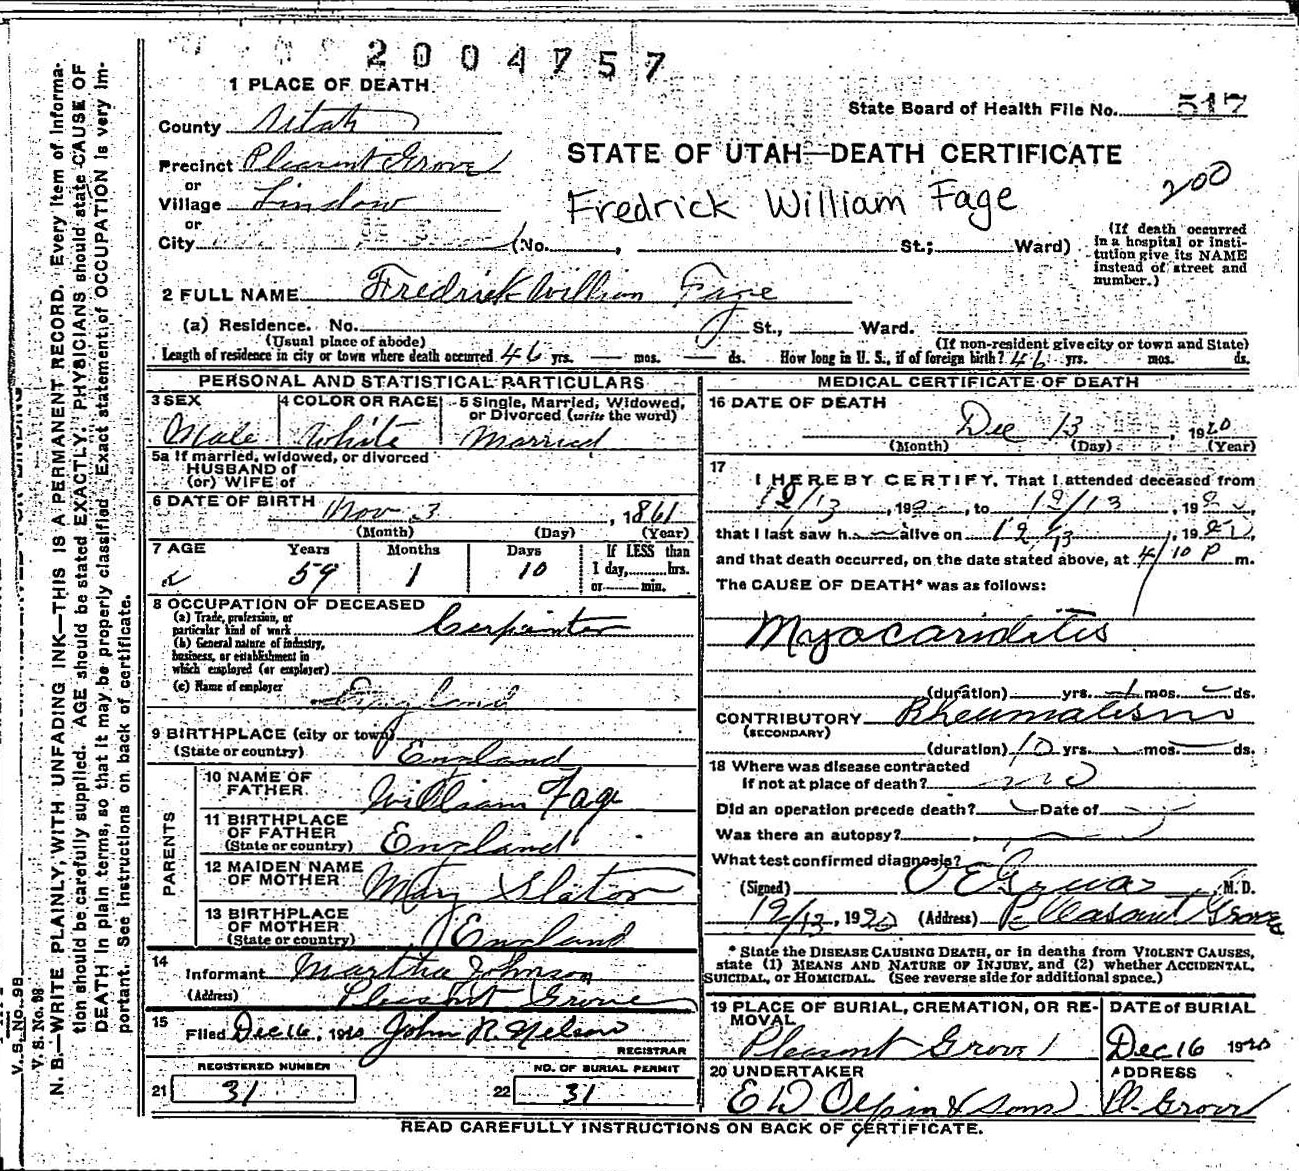 2004757
1 PLACE OF DEATH
State Board of Health File No. 517
County Utah
STATE OF UTAH—DEATH CERTIFICATE
Precinct Pleasant Grove
or
Village Lindow
Fredrick William Fage
200
or
City (No. , St.; Ward)
(If death occurred
in a hospital or insti-
tution give its NAME
instead of street and
number.)
2 FULL NAME Fredrick William Fage
(a) Residence. No. St., Ward.
(Usual place of abode) (If non-resident give city or town and State)
Length of residence in city or town where death occurred 46 yrs. — mos. — ds. How long in U. S., if of foreign birth? 46 yrs. mos. ds.
PERSONAL AND STATISTICAL PARTICULARS
3 SEX 4 COLOR OR RACE 5 Single, Married, Widowed,
or Divorced (write the word)
Male White Married
5a If married, widowed, or divorced
HUSBAND of
(or) WIFE of
6 DATE OF BIRTH Nov 3, 1861
(Month) (Day) (Year)
7 AGE Years Months Days If LESS than
59 1 10 1 day, hrs.
or min.
8 OCCUPATION OF DECEASED
(a) Trade, profession, or
particular kind of work Carpenter
(b) General nature of industry,
business, or establishment in
which employed (or employer)
(c) Name of employer England
9 BIRTHPLACE (city or town)
(State or country) England
PARENTS
10 NAME OF
FATHER William Fage
11 BIRTHPLACE
OF FATHER
(State or country) England
12 MAIDEN NAME
OF MOTHER Mary Slator
13 BIRTHPLACE
OF MOTHER
(State or country) England
14
Informant Martha Johnson
(Address) Pleasant Grove
15
Filed Dec 16, 1920 John R. Nelson
REGISTRAR
REGISTERED NUMBER NO. OF BURIAL PERMIT
21 31 22 31
MEDICAL CERTIFICATE OF DEATH
16 DATE OF DEATH
Dec 13, 1920
(Month) (Day) (Year)
17
I HEREBY CERTIFY, That I attended deceased from
12/13, 192 , to 12/13, 192
that I last saw h alive on 12/13, 1920,
and that death occurred, on the date stated above, at 4/10 P m.
The CAUSE OF DEATH* was as follows:
Myocariditis
(duration) yrs. 1 mos. — ds.
CONTRIBUTORY Rheumatism
(SECONDARY)
(duration) 10 yrs. — mos. — ds.
18 Where was disease contracted
if not at place of death?
Did an operation precede death? Date of
Was there an autopsy?
What test confirmed diagnosis?
(Signed) M. D.
12/13, 1920 (Address) Pleasant Grove
* State the DISEASE CAUSING DEATH, or in deaths from VIOLENT CAUSES,
state (1) MEANS AND NATURE OF INJURY, and (2) whether ACCIDENTAL,
SUICIDAL, or HOMICIDAL. (See reverse side for additional space.)
19 PLACE OF BURIAL, CREMATION, OR RE-
MOVAL
DATE of BURIAL
Pleasant Grove Dec 16 1920
20 UNDERTAKER ADDRESS
E D Olpin & Sons Pl. Grove
READ CAREFULLY INSTRUCTIONS ON BACK OF CERTIFICATE.
V. S. No. 98
V. S. No. 98
N. B.—WRITE PLAINLY, WITH UNFADING INK—THIS IS A PERMANENT RECORD. Every item of informa-
tion should be carefully supplied. AGE should be stated EXACTLY. PHYSICIANS should state CAUSE OF
DEATH in plain terms, so that it may be properly classified. Exact statement of OCCUPATION is very im-
portant. See instructions on back of certificate.